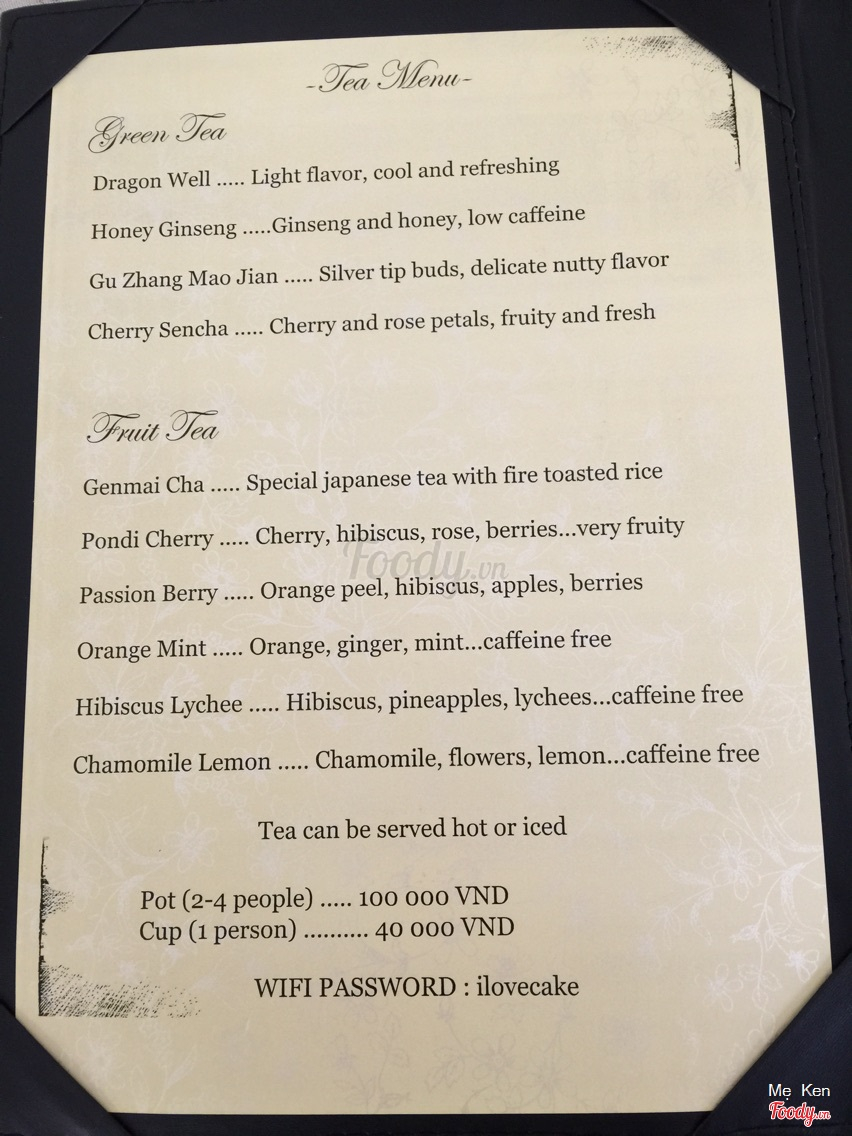 -Tea Menu-
Green Tea
Dragon Well ..... Light flavor, cool and refreshing
Honey Ginseng .....Ginseng and honey, low caffeine
Gu Zhang Mao Jian ..... Silver tip buds, delicate nutty flavor
Cherry Sencha ..... Cherry and rose petals, fruity and fresh
Fruit Tea
Genmai Cha ..... Special japanese tea with fire toasted rice
Pondi Cherry ..... Cherry, hibiscus, rose, berries...very fruity
Foody.vn
Passion Berry ..... Orange peel, hibiscus, apples, berries
Orange Mint ..... Orange, ginger, mint...caffeine free
Hibiscus Lychee ..... Hibiscus, pineapples, lychees...caffeine free
Chamomile Lemon ..... Chamomile, flowers, lemon...caffeine free
Tea can be served hot or iced
Pot (2-4 people) ..... 100 000 VND
Cup (1 person) .......... 40 000 VND
WIFI PASSWORD : ilovecake
Mẹ Ken
Foody.vn